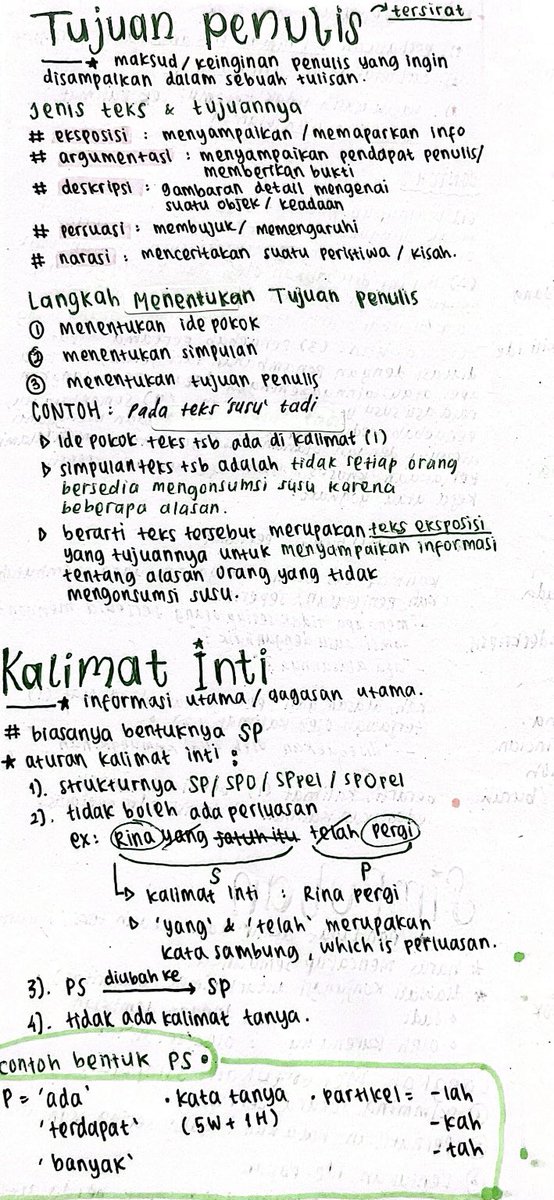 Tujuan penulis → tersirat
★ maksud / keinginan penulis yang ingin
disampaikan dalam sebuah tulisan.
Jenis teks & tujuannya
# eksposisi : menyampaikan / memaparkan info
# argumentasi : menyampaikan pendapat penulis/
memberikan bukti
# deskripsi : gambaran detail mengenai
suatu objek / keadaan
# persuasi : membujuk / memengaruhi
# narasi : menceritakan suatu peristiwa / kisah.
Langkah Menentukan Tujuan penulis
① menentukan ide pokok
② menentukan simpulan
③ menentukan tujuan penulis
CONTOH : Pada teks 'susu' tadi
▷ ide pokok teks tsb ada di kalimat (1)
▷ simpulan teks tsb adalah tidak setiap orang
bersedia mengonsumsi susu karena
beberapa alasan.
▷ berarti teks tersebut merupakan teks eksposisi
yang tujuannya untuk menyampaikan informasi
tentang alasan orang yang tidak
mengonsumsi susu.
Kalimat Inti
★ informasi utama / gagasan utama.
# biasanya bentuknya SP
★ aturan kalimat inti :
1). strukturnya SP / SPO / SPpel / SPOpel
2). tidak boleh ada perluasan
ex: Rina yang jatuh itu telah pergi
S P
↳ kalimat inti : Rina pergi
▷ 'yang' & 'telah' merupakan
kata sambung, which is perluasan.
3). PS diubah ke → SP
4). tidak ada kalimat tanya.
contoh bentuk PS •
P = 'ada' • kata tanya • partikel = -lah
'terdapat' (5W + 1H) -kah
'banyak' -tah